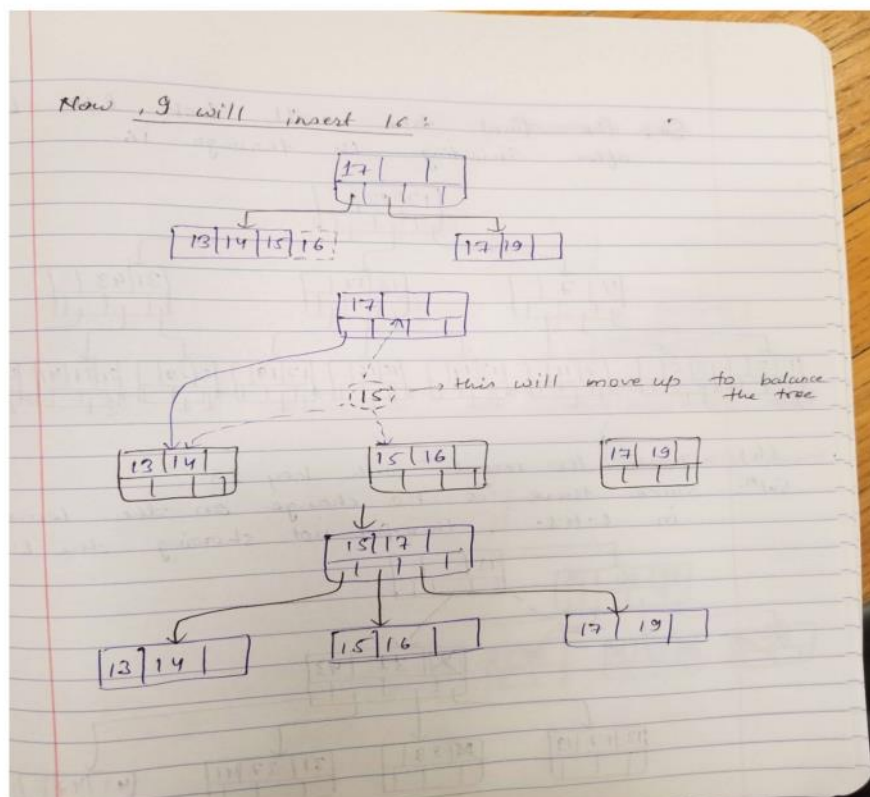 Now, I will insert 16:
17
13 14 15 16
17 19
17
15 → this will move up to balance
the tree
13 14
15 16
17 19
15 17
13 14
15 16
17 19